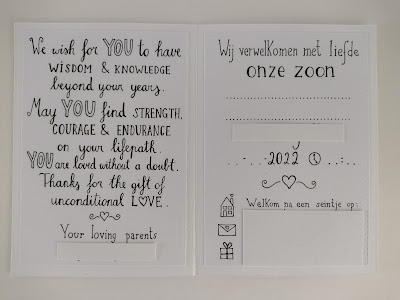 We wish for YOU to have
WISDOM & KNOWLEDGE
beyond your years.
May YOU find STRENGTH,
COURAGE & ENDURANCE
on your lifepath.
YOU are loved without a doubt.
Thanks for the gift of
unconditional LOVE.
Your loving parents
Wij verwelkomen met liefde
onze zoon
2022
Welkom na een seintje op: